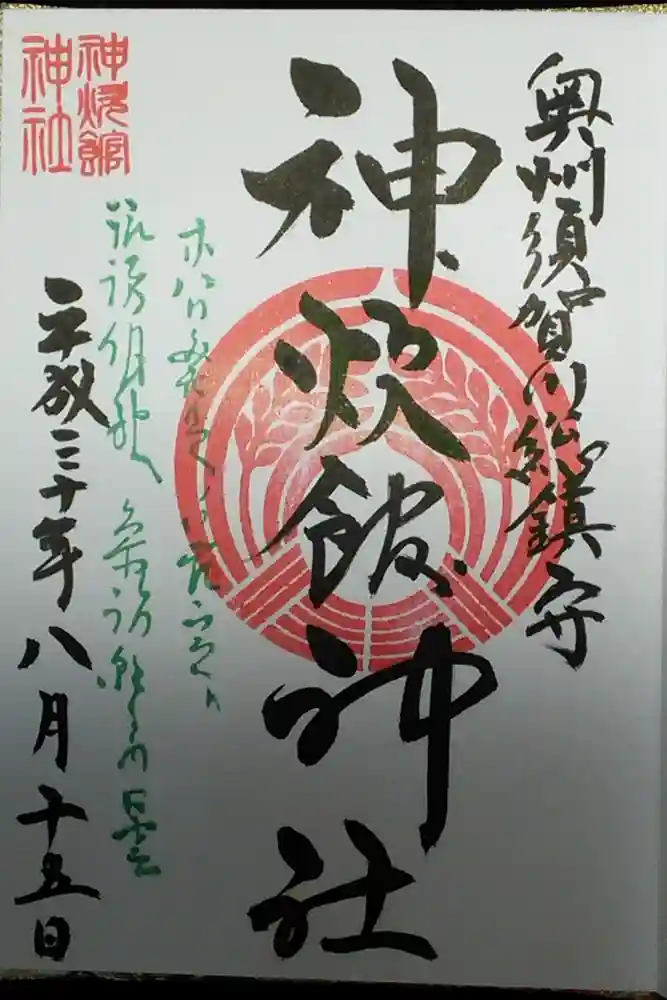 奥州須賀川総鎮守
神炊館神社
神炊館
神社
平成三十年八月十五日